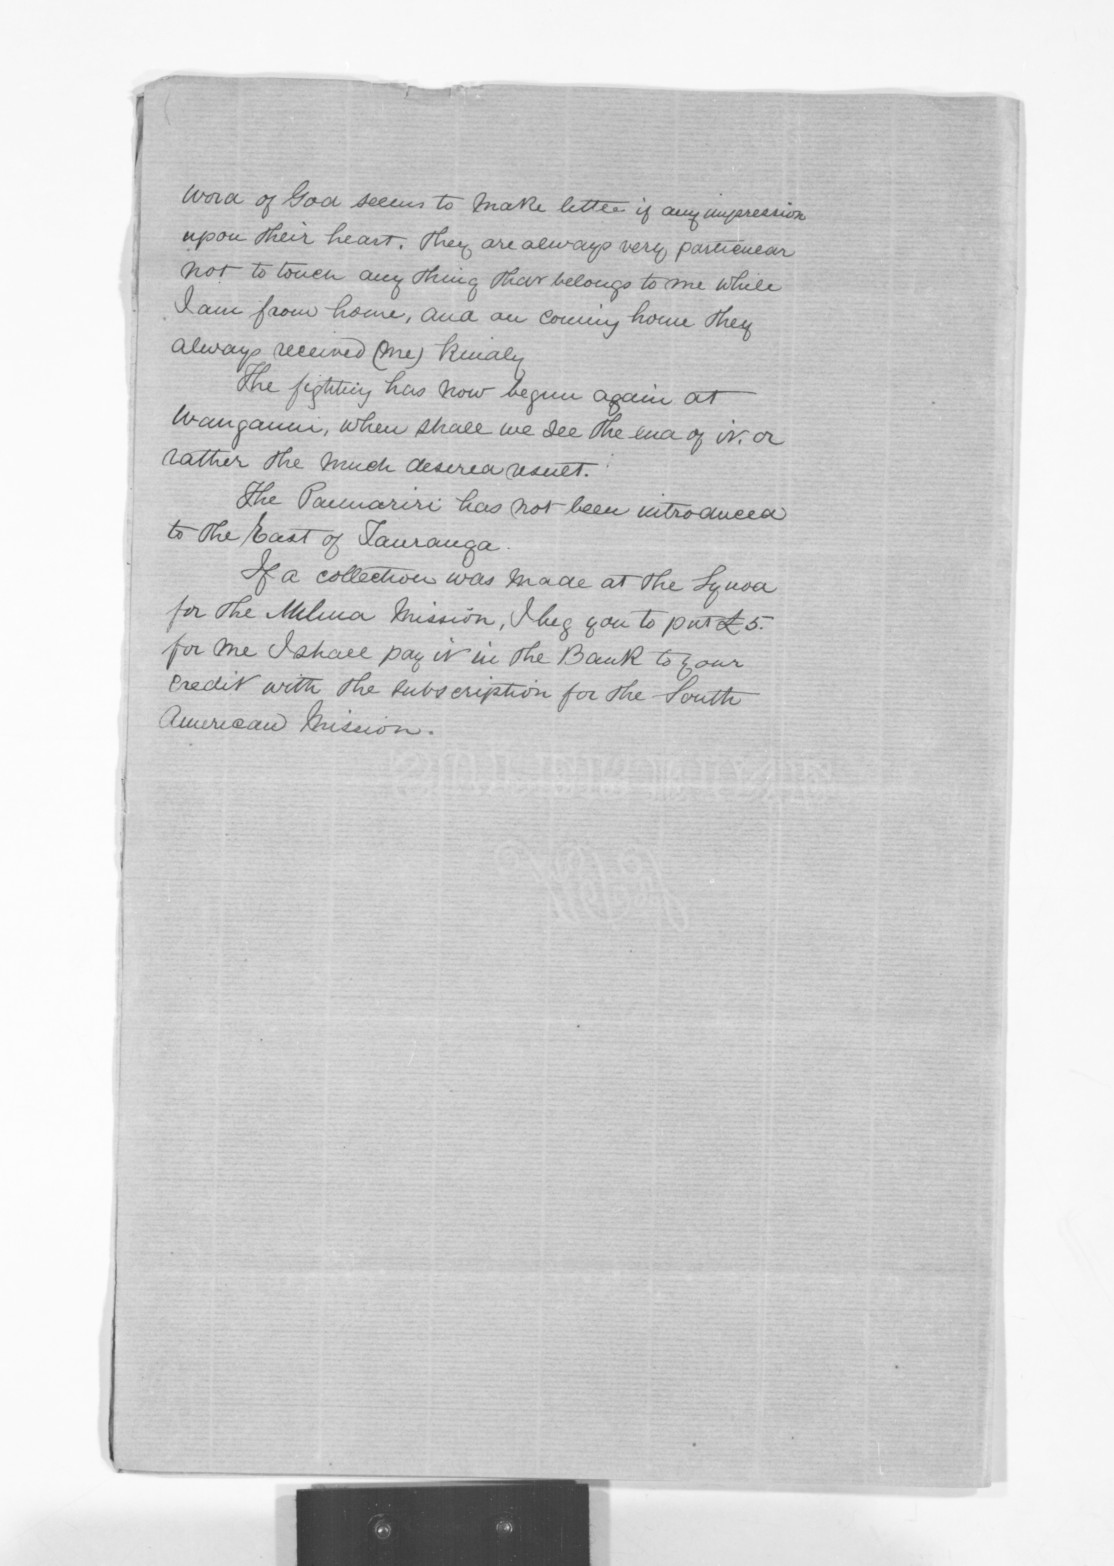 word of God seems to make little if any impression
upon their heart. They are always very particular
not to touch any thing that belongs to me while
I am from home, and on coming home they
always received (me) kindly
The fighting has now begun again at
Wanganui, when shall we see the end of it. or
rather the much desired result.
The Paimariri has not been introduced
to the East of Tauranga.
If a collection was made at the Synod
for the Melina Mission, I beg you to put £5.
for me I shall pay it in the Bank to your
credit with the subscription for the South
American Mission.